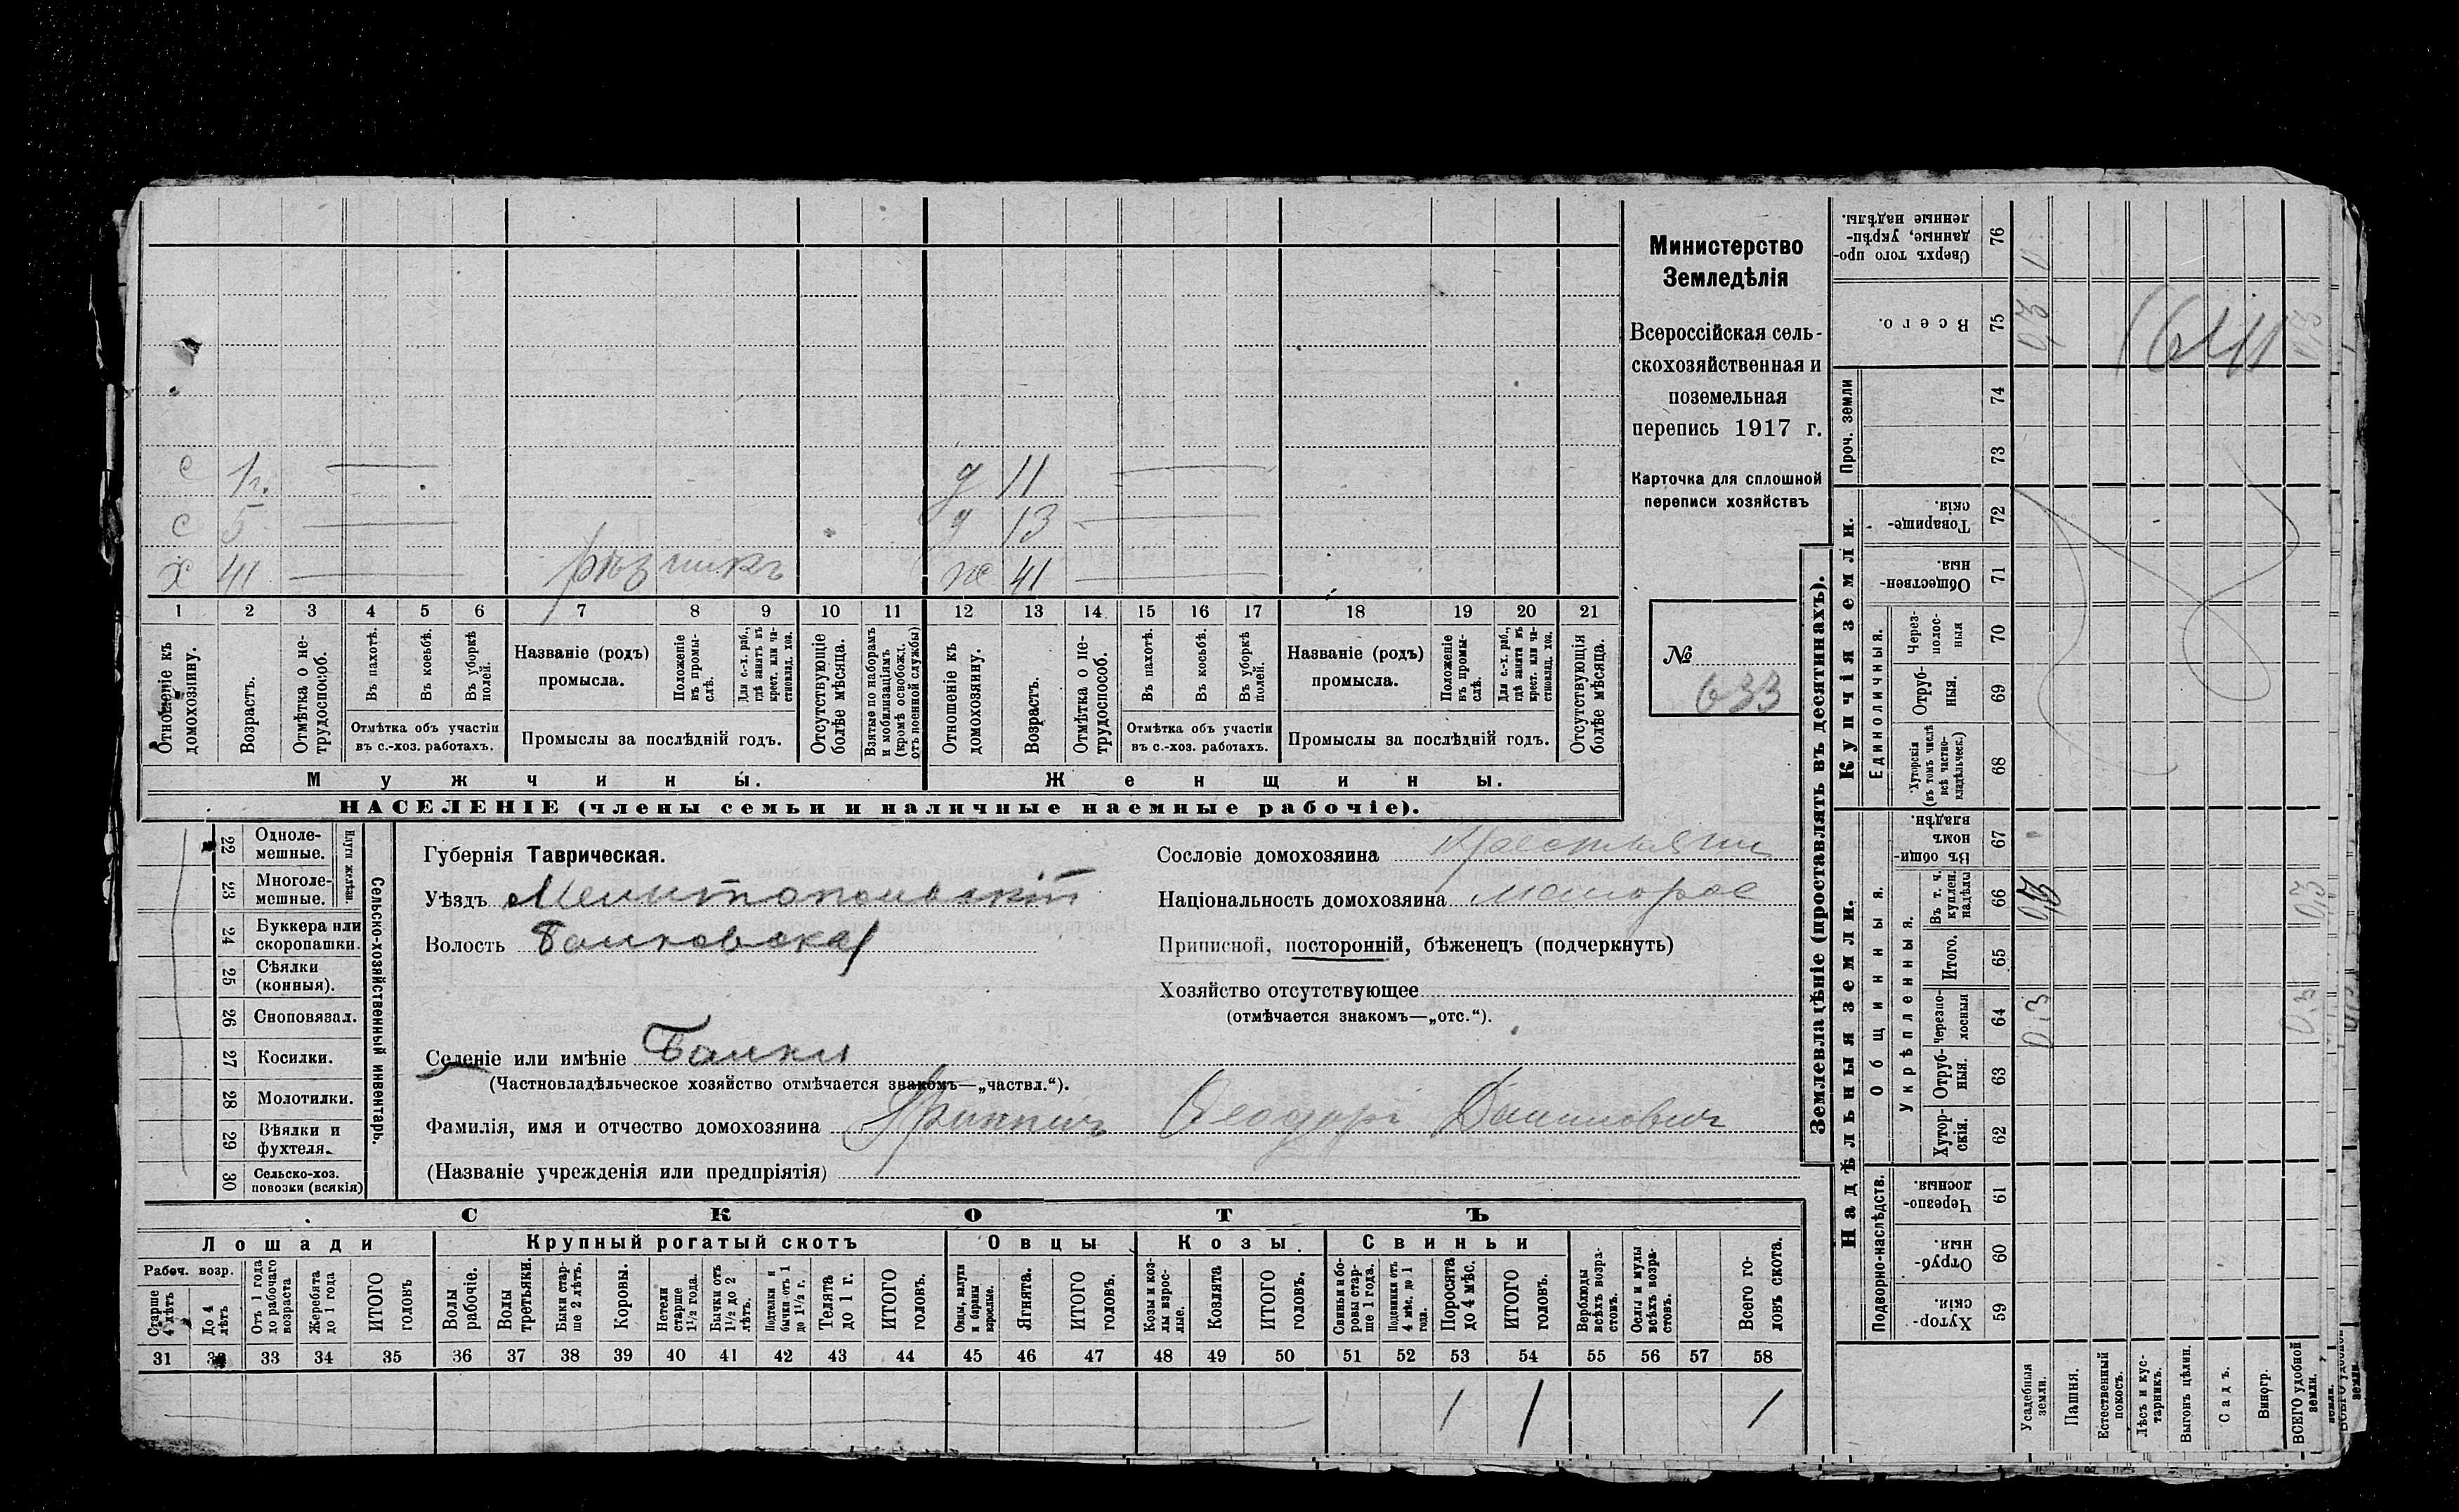 с 1г. — д 11 —
с 5 — д 13 —
х 41 — рѣзникъ ж 41 —
1 2 3 4 5 6 7 8 9 10 11 12 13 14 15 16 17 18 19 20 21
Отношеніе къ домохозяину.
Возрастъ.
Отмѣтка о нетрудоспособ.
Въ пахотѣ.
Въ косьбѣ.
Въ уборкѣ полей.
Отмѣтка объ участіи
въ с.-хоз. работахъ.
Названіе (родъ)
промысла.
Положеніе въ промыслѣ.
Для с.-х. раб., гдѣ занятъ въ крест. или частновлад. хоз.
Промыслы за послѣдній годъ.
Отсутствующіе болѣе мѣсяца.
Взятые по наборамъ и мобилизаціямъ (кромѣ освобожд. отъ военной службы)
Отношеніе къ домохозяину.
Возрастъ.
Отмѣтка о нетрудоспособ.
Въ пахотѣ.
Въ косьбѣ.
Въ уборкѣ полей.
Отмѣтка объ участіи
въ с.-хоз. работахъ.
Названіе (родъ)
промысла.
Положеніе въ промыслѣ.
Для с.-х. раб., гдѣ занята въ крест. или частновлад. хоз.
Промыслы за послѣдній годъ.
Отсутствующія болѣе мѣсяца.
Мужчины.
Женщины.
НАСЕЛЕНІЕ (члены семьи и наличные наемные рабочіе).
Министерство
Земледѣлія
Всероссійская сель-
скохозяйственная и
поземельная
перепись 1917 г.
Карточка для сплошной
переписи хозяйствъ
№
633
22 Одноле-
мешные.
23 Многоле-
мешные.
Плуги желѣзн.
24 Буккера или
скоропашки.
25 Сѣялки
(конныя).
26 Сноповязал.
27 Косилки.
28 Молотилки.
29 Вѣялки и
фухтеля.
30 Сельско-хоз.
повозки (всякія)
Сельско-хозяйственный инвентарь.
Губернія Таврическая.
Уѣздъ Мелитопольскій
Волость Балковская
Селеніе или имѣніе Балки
(Частновладѣльческое хозяйство отмѣчается знакомъ—„частвл.“).
Фамилія, имя и отчество домохозяина Ѳеодоръ
(Названіе учрежденія или предпріятія)
Сословіе домохозяина Крестьянин
Національность домохозяина малорос
Приписной, посторонній, бѣженецъ (подчеркнуть)
Хозяйство отсутствующее
(отмѣчается знакомъ—„отс.“).
СКОТЪ
Лошади
Рабоч. возр.
Старше 4 лѣтъ
До 4 лѣтъ
Отъ 1 года до рабочаго возраста
Жеребята до 1 года
ИТОГО головъ
Крупный рогатый скотъ
Волы рабочіе.
Волы третьяки.
Быки старше 2 лѣтъ.
Коровы.
Нетели старше 1½ года.
Бычки отъ 1½ до 2 лѣтъ.
Подтелки и бычки отъ 1 до 1½ г.
Телята до 1 г.
ИТОГО головъ.
Овцы
Овцы, валухи и бараны взрослые.
Ягнята.
ИТОГО головъ.
Козы
Козы и козлы взрослые.
Козлята
ИТОГО головъ.
Свиньи
Свиньи и боровы старше 1 года.
Подсвинки отъ 4 мѣс. до 1 года.
Поросята до 4 мѣс.
ИТОГО головъ.
Верблюды всѣхъ возрастовъ.
Ослы и мулы всѣхъ возрастовъ.
Всего головъ скота.
31 32 33 34 35 36 37 38 39 40 41 42 43 44 45 46 47 48 49 50 51 52 53 54 55 56 57 58
1 1 1
Землевладѣніе (проставлять въ десятинахъ).
Надѣльныя земли.
Подворно-наслѣдств.
Хуторскія. 59
Отрубныя. 60
Черезполосныя 61
Общинныя.
Укрѣпленныя.
Хуторскія. 62
Отрубныя. 63
Черезполосныя 64
Итого. 65
Въ т. ч. куплен. надѣлы 66
Въ общинномъ владѣн. 67
Купчія земли.
Единоличныя.
Хуторскія (въ томъ числѣ всѣ частновладѣльческ.) 68
Отрубныя. 69
Черезполосныя 70
Общественныя. 71
Товарищескія. 72
Проч. земли
73
74
Всего. 75
Сверхъ того проданные, укрѣпленные надѣлы. 76
Усадебныя земли. 0,3 0,3 0,3
Пашня.
Естественный покосъ.
Лѣсъ и кустарникъ.
Выгонъ цѣлин.
Садъ.
Виногр.
ВСЕГО удобной земли. 0,3 0,3 0,3